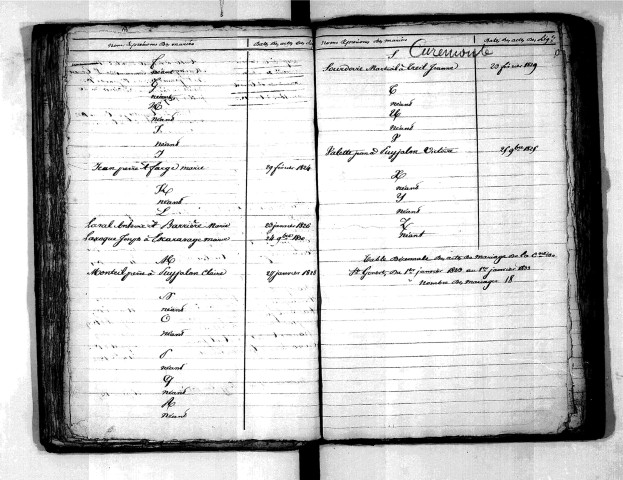 Nom & prénoms des mariés
Date des actes des
F
néant
G
néant
H
néant
I
néant
J
Jean pierre et farge marie 29 février 1824
K
néant
L
Laval Antoine et Barrière Marie 23 janvier 1826
à Escaravage 24 9bre 1830
M
Monteil pierre à Puyjalon Claire 27 janvier 1828
N
néant
O
néant
P
néant
Q
néant
R
néant
Nom & prénoms des mariés
Date des actes des
S
Curemonte
Martial à Treil Jeanne 23 février 1829
T
néant
U
néant
V
Valette jean à Puyjalon 25 9bre 1828
X
néant
Y
néant
Z
néant
Table Décennale des actes de mariage de la Cne de
St Genest, du 1er janvier 1823 au 1er janvier 1833
Nombre des mariages 18